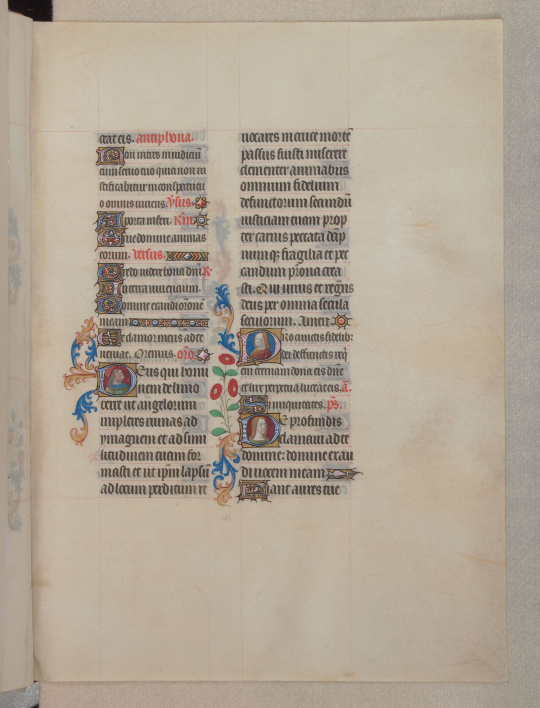 ceat eis. antiphona.
Non intres in iudiciū
cum seruo tuo quia non iu
stificabitur in conspectu tu
o omnis uiuens. Ꝟsus.
A porta inferi. Rm̄
Erue domine animas
eorum. Versus.
Credo uidere bona dn̄i. R
In terra uiuencium.
Domine exaudi oronē
meam
Et clamor meus ad te
ueniat. Oremus. oro
Deus qui homi
nem de limo
terre ut angelorum
impleres ruinas ad
ymaginem et ad simi
litudinem tuam for
masti et ut ip̄m lapsū
ad locum perditum re
uocares in cruce mortē
passus fuisti miserere
clementer animabus
omnium fidelium
defunctorum secundū
iusticiam tuam prop
ter carnis peccata dep̄
nimqꝫ fragilia et pec
candium prona crea
sti. Qui uiuis et regn̄s
deus per omnia secula
seculorum. Amen
Pro cunctis fidelibꝫ
dei defunctis req̄
em eternam dona eis dn̄e
et lux perpetua luceat eis. a.
Si iniquitates. p̄s
De profundis
clamaui ad te
domine: domine exau
di uocem meam
Fiant aures tue